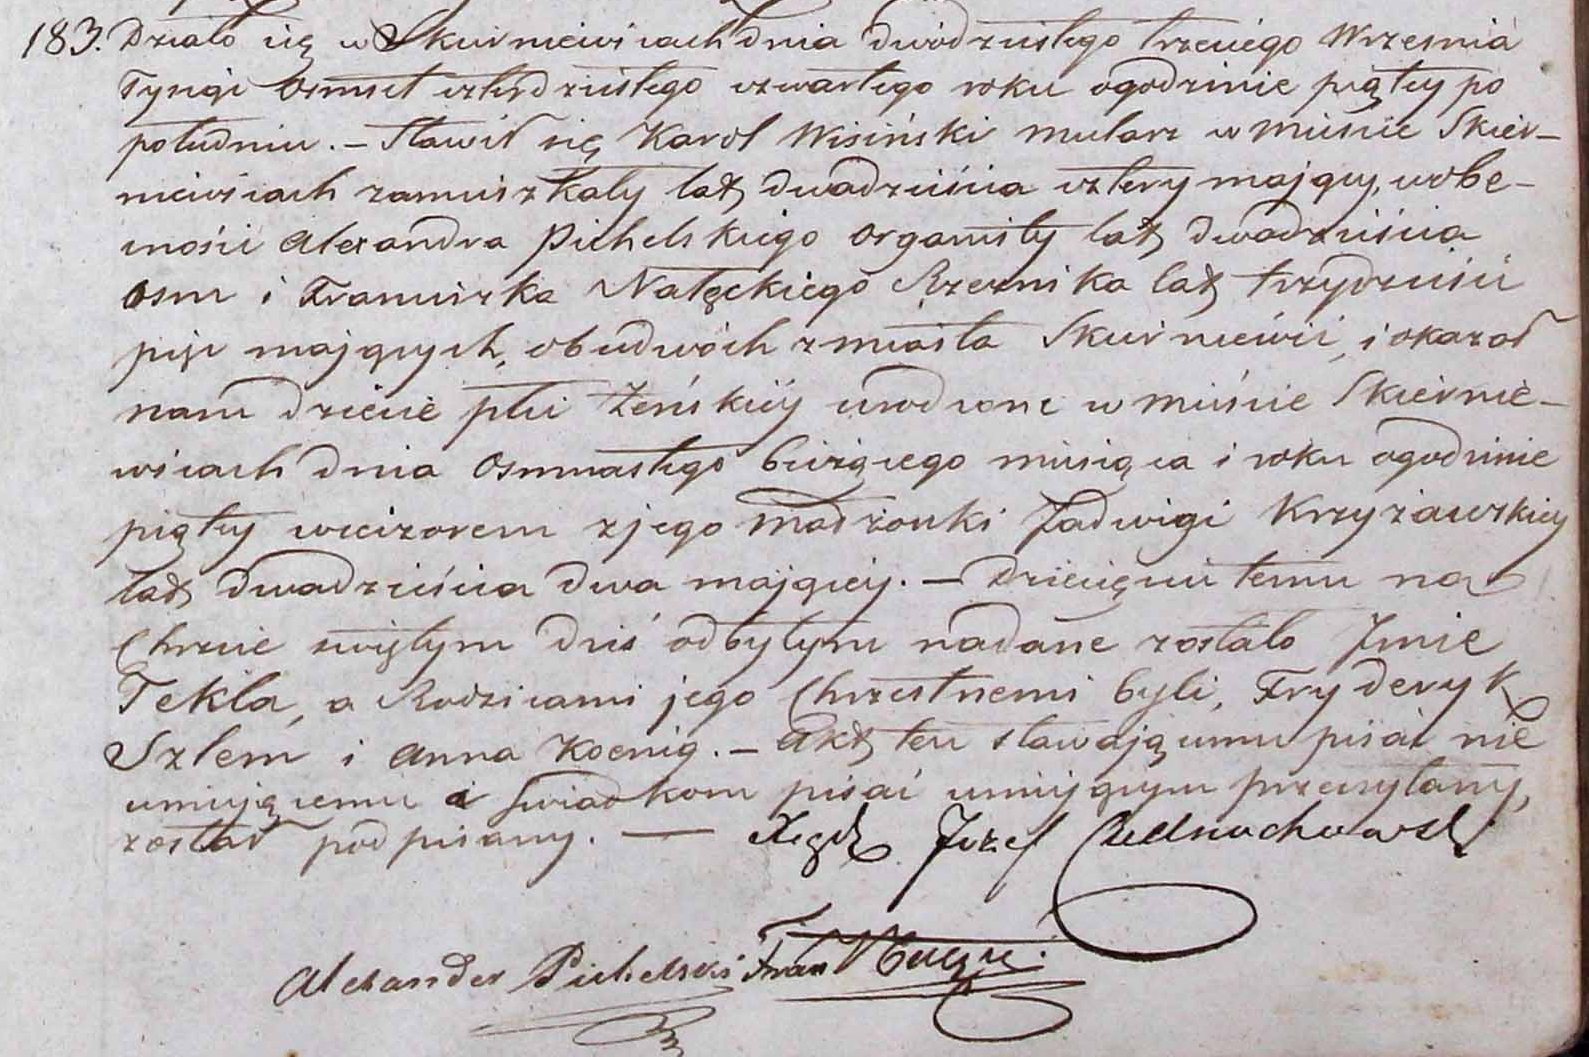 183. Działo się w Skierniewicach dnia dwódziestego trzeciego Września
Tysiąc Osmset czterdziestego czwartego roku o godzinie piątey po
południu. – Stawił się Karol Wisiński mularz w mieście Skier-
niewicach zamieszkały lat dwadzieścia cztery mający, w obe-
cności Alexandra Pichelskiego organisty lat dwadzieścia
osm i Franciszka Nałęckiego Rzeźnika lat trzydzieści
pięć mających, obudwóch z miasta Skierniewic, i okazał
nam dziecie płci żeńskiéy urodzone w mieście Skiernie-
wicach dnia Osmnastego bieżącego miesiąca i roku o godzinie
piątey wieczorem z jego małżonki Jadwigi Krzyżawskiey
lat dwadzieścia dwa maiącey. – Dziecięciu temu na
Chrzcie świętym dziś odbytym nadane zostało Imie
Tekla, a Rodzicami jego Chrzestnemi byli, Fryderyk
Szlem i Anna Koenig. – Akt ten stawaiącemu pisać nie
umieiącemu i Swiadkom pisać umieiącym przeczytany,
został podpisany. — Xiądz Jozef
Alexander Pichelski Fran